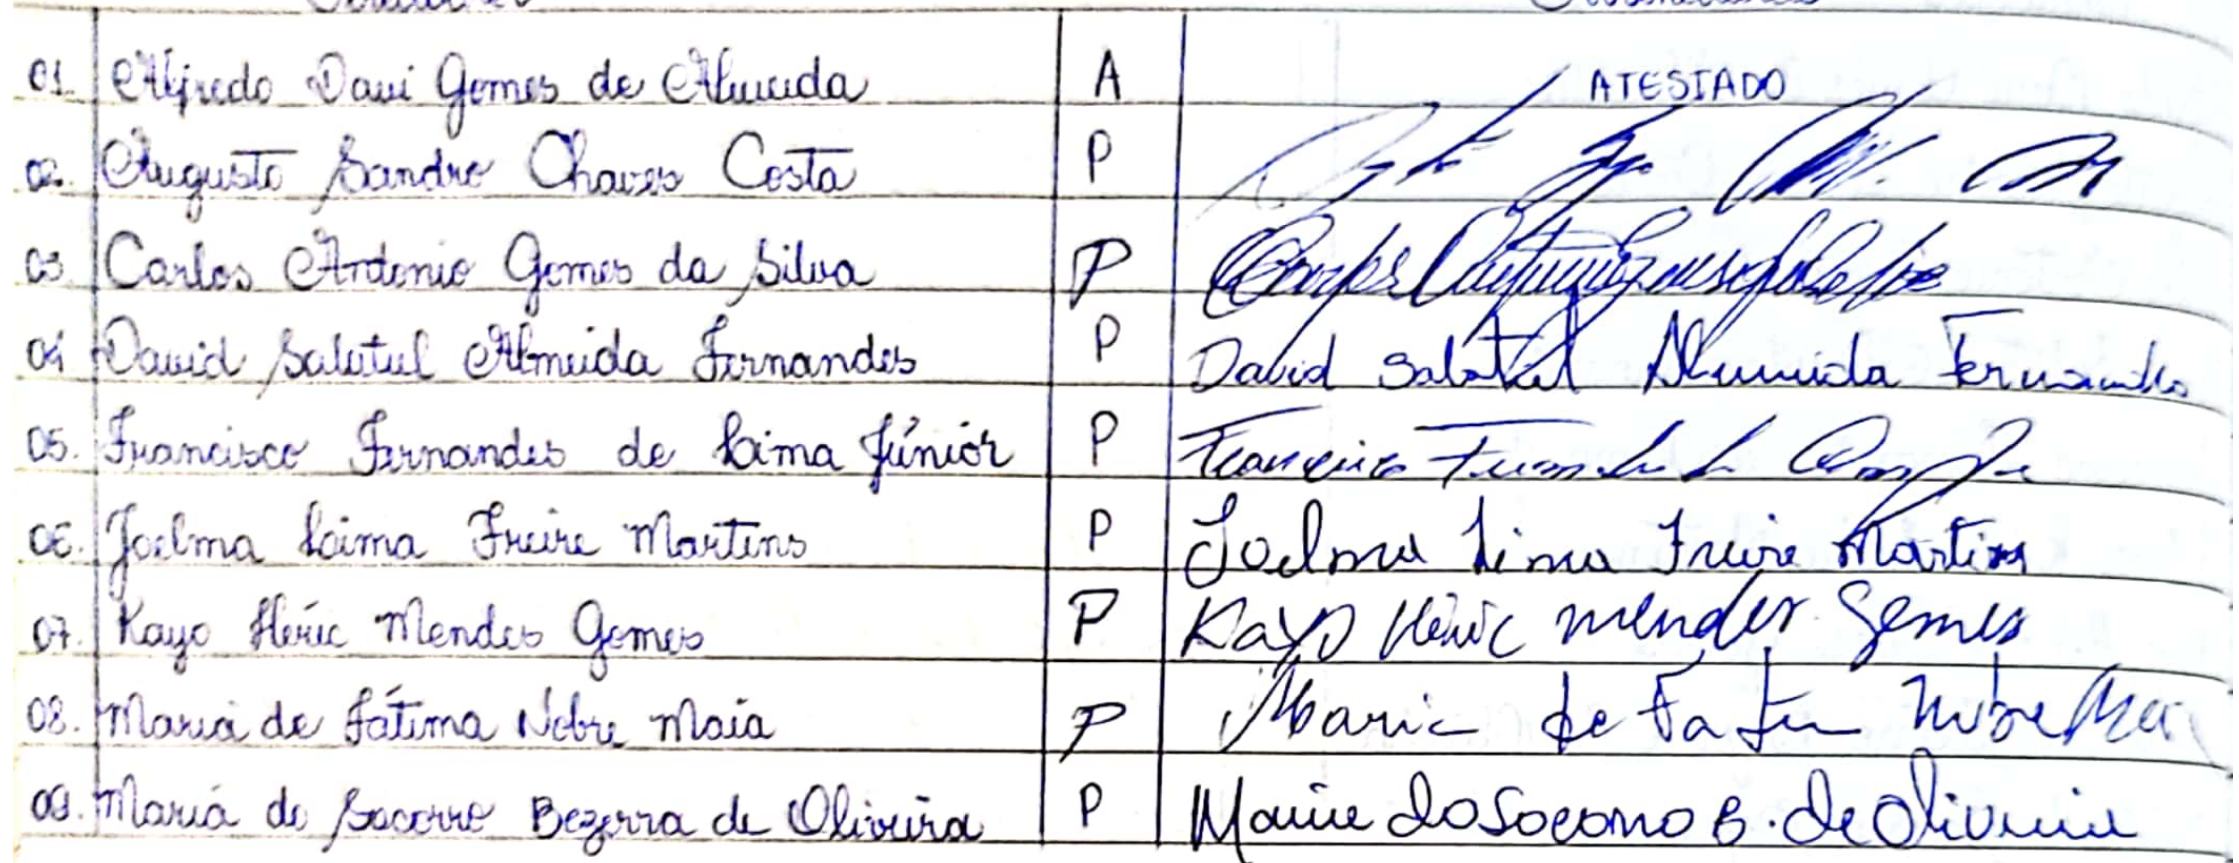 01. Alfredo Davi Gomes de Almeida A ATESTADO
02. Augusto Sandro Chaves Costa P
03. Carlos Antonio Gomes da Silva P
04 David Salatul Almeida Fernandes P David Salatul Almeida Fernandes
05. Francisco Fernandes de Lima Júnior P Francisco
06. Joelma Lima Freire Martins P Joelma Lima Freire Martins
07. Kayo Héric Mendes Gomes P Kayo Héric Mendes Gomes
08. Maria de Fátima Nobre Maia P Maria de Fatima Nobre Maia
09. Maria do Socorro Bezerra de Oliveira P Maria do Socorro B. de Oliveira